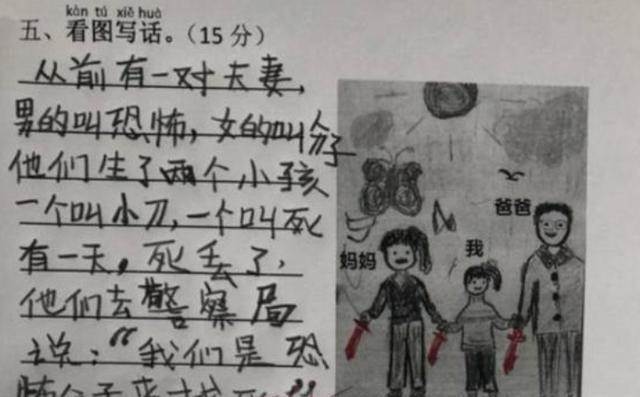 kàn tú xiě huà
五、看图写话。（15 分）
从前有一对夫妻，
男的叫恐怖，女的叫分子
他们生了两个小孩
一个叫小刀，一个叫死
有一天，死丢了，
他们去警察局
说：“我们是恐
怖分子来找死”
妈妈
我
爸爸